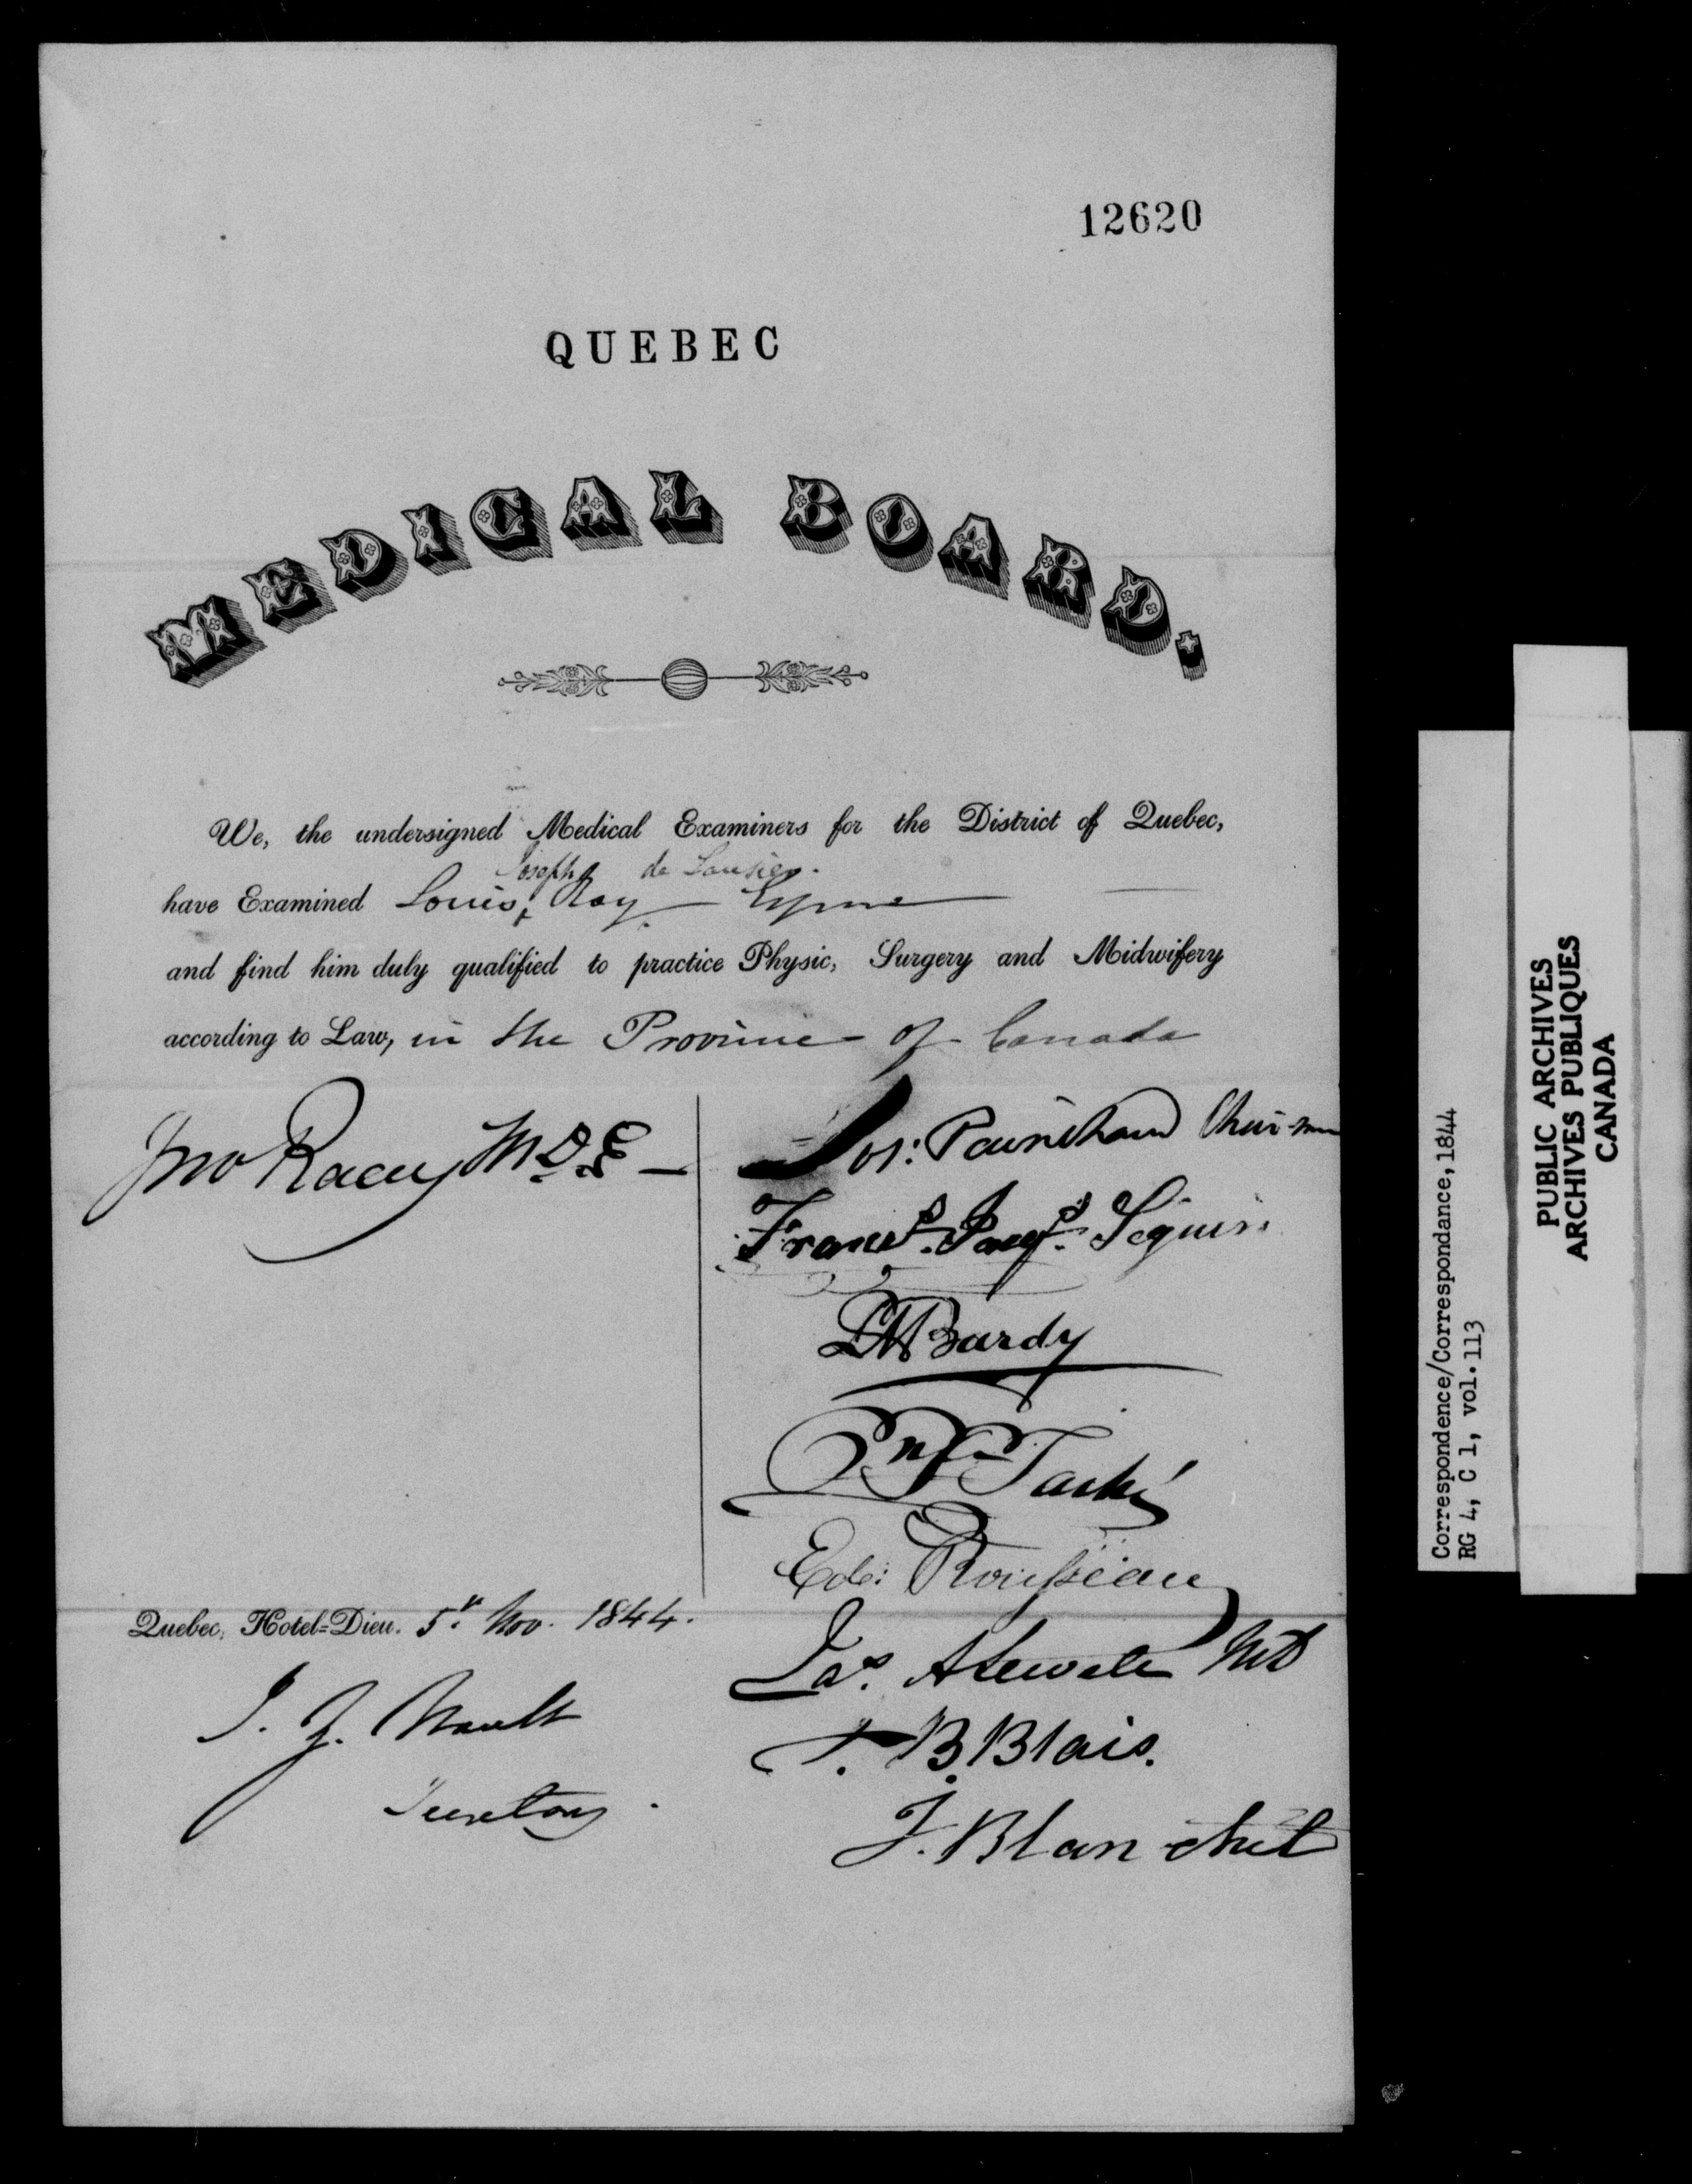 12620
QUEBEC
MEDICAL BOARD.
We, the undersigned Medical Examiners for the District of Quebec,
Joseph de Lusier.
have Examined Louis, Roy Esquire
and find him duly qualified to practice Physic, Surgery and Midwifery
according to Law, in the Province of Canada
Jno Racey M.D.E
Jos: Painchaud Chairman
Frans. Jacqs. Seguin
PM Bardy
Taché
Ede: Rousseau
Jas. A Sewell MD
T. B. Blais.
J. Blanchet
Quebec, Hotel-Dieu. 5th Nov. 1844.
J. Z. Nault
Secretary.
Correspondence/Correspondance, 1844
RG 4, C 1, vol. 113
PUBLIC ARCHIVES
ARCHIVES PUBLIQUES
CANADA